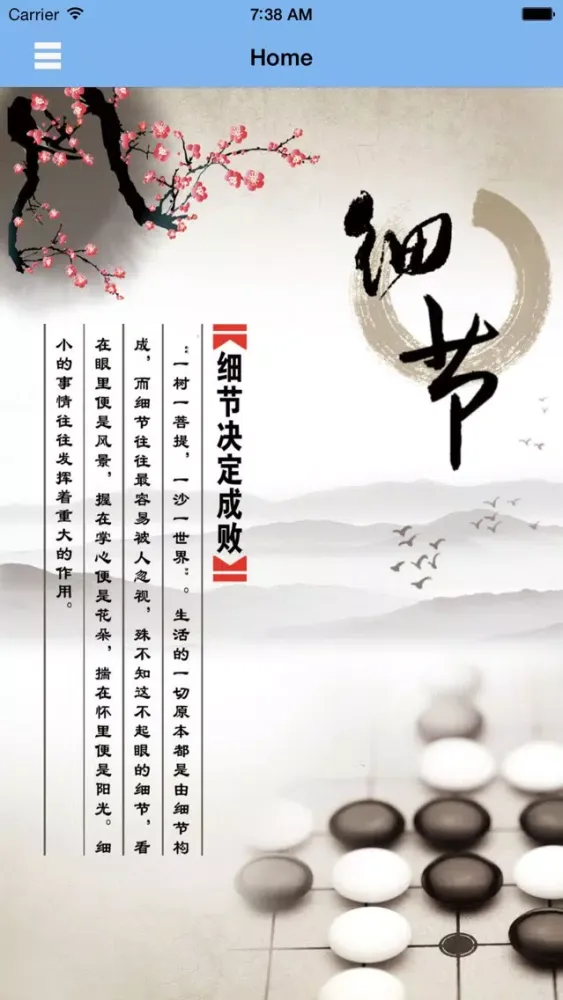 Carrier 7:38 AM
Home
细节
细节决定成败
“一树一菩提，一沙一世界”。生活的一切原本都是由细节构
成，而细节往往最容易被人忽视，殊不知这不起眼的细节，看
在眼里便是风景，握在掌心便是花朵，揣在怀里便是阳光。细
小的事情往往发挥着重大的作用。